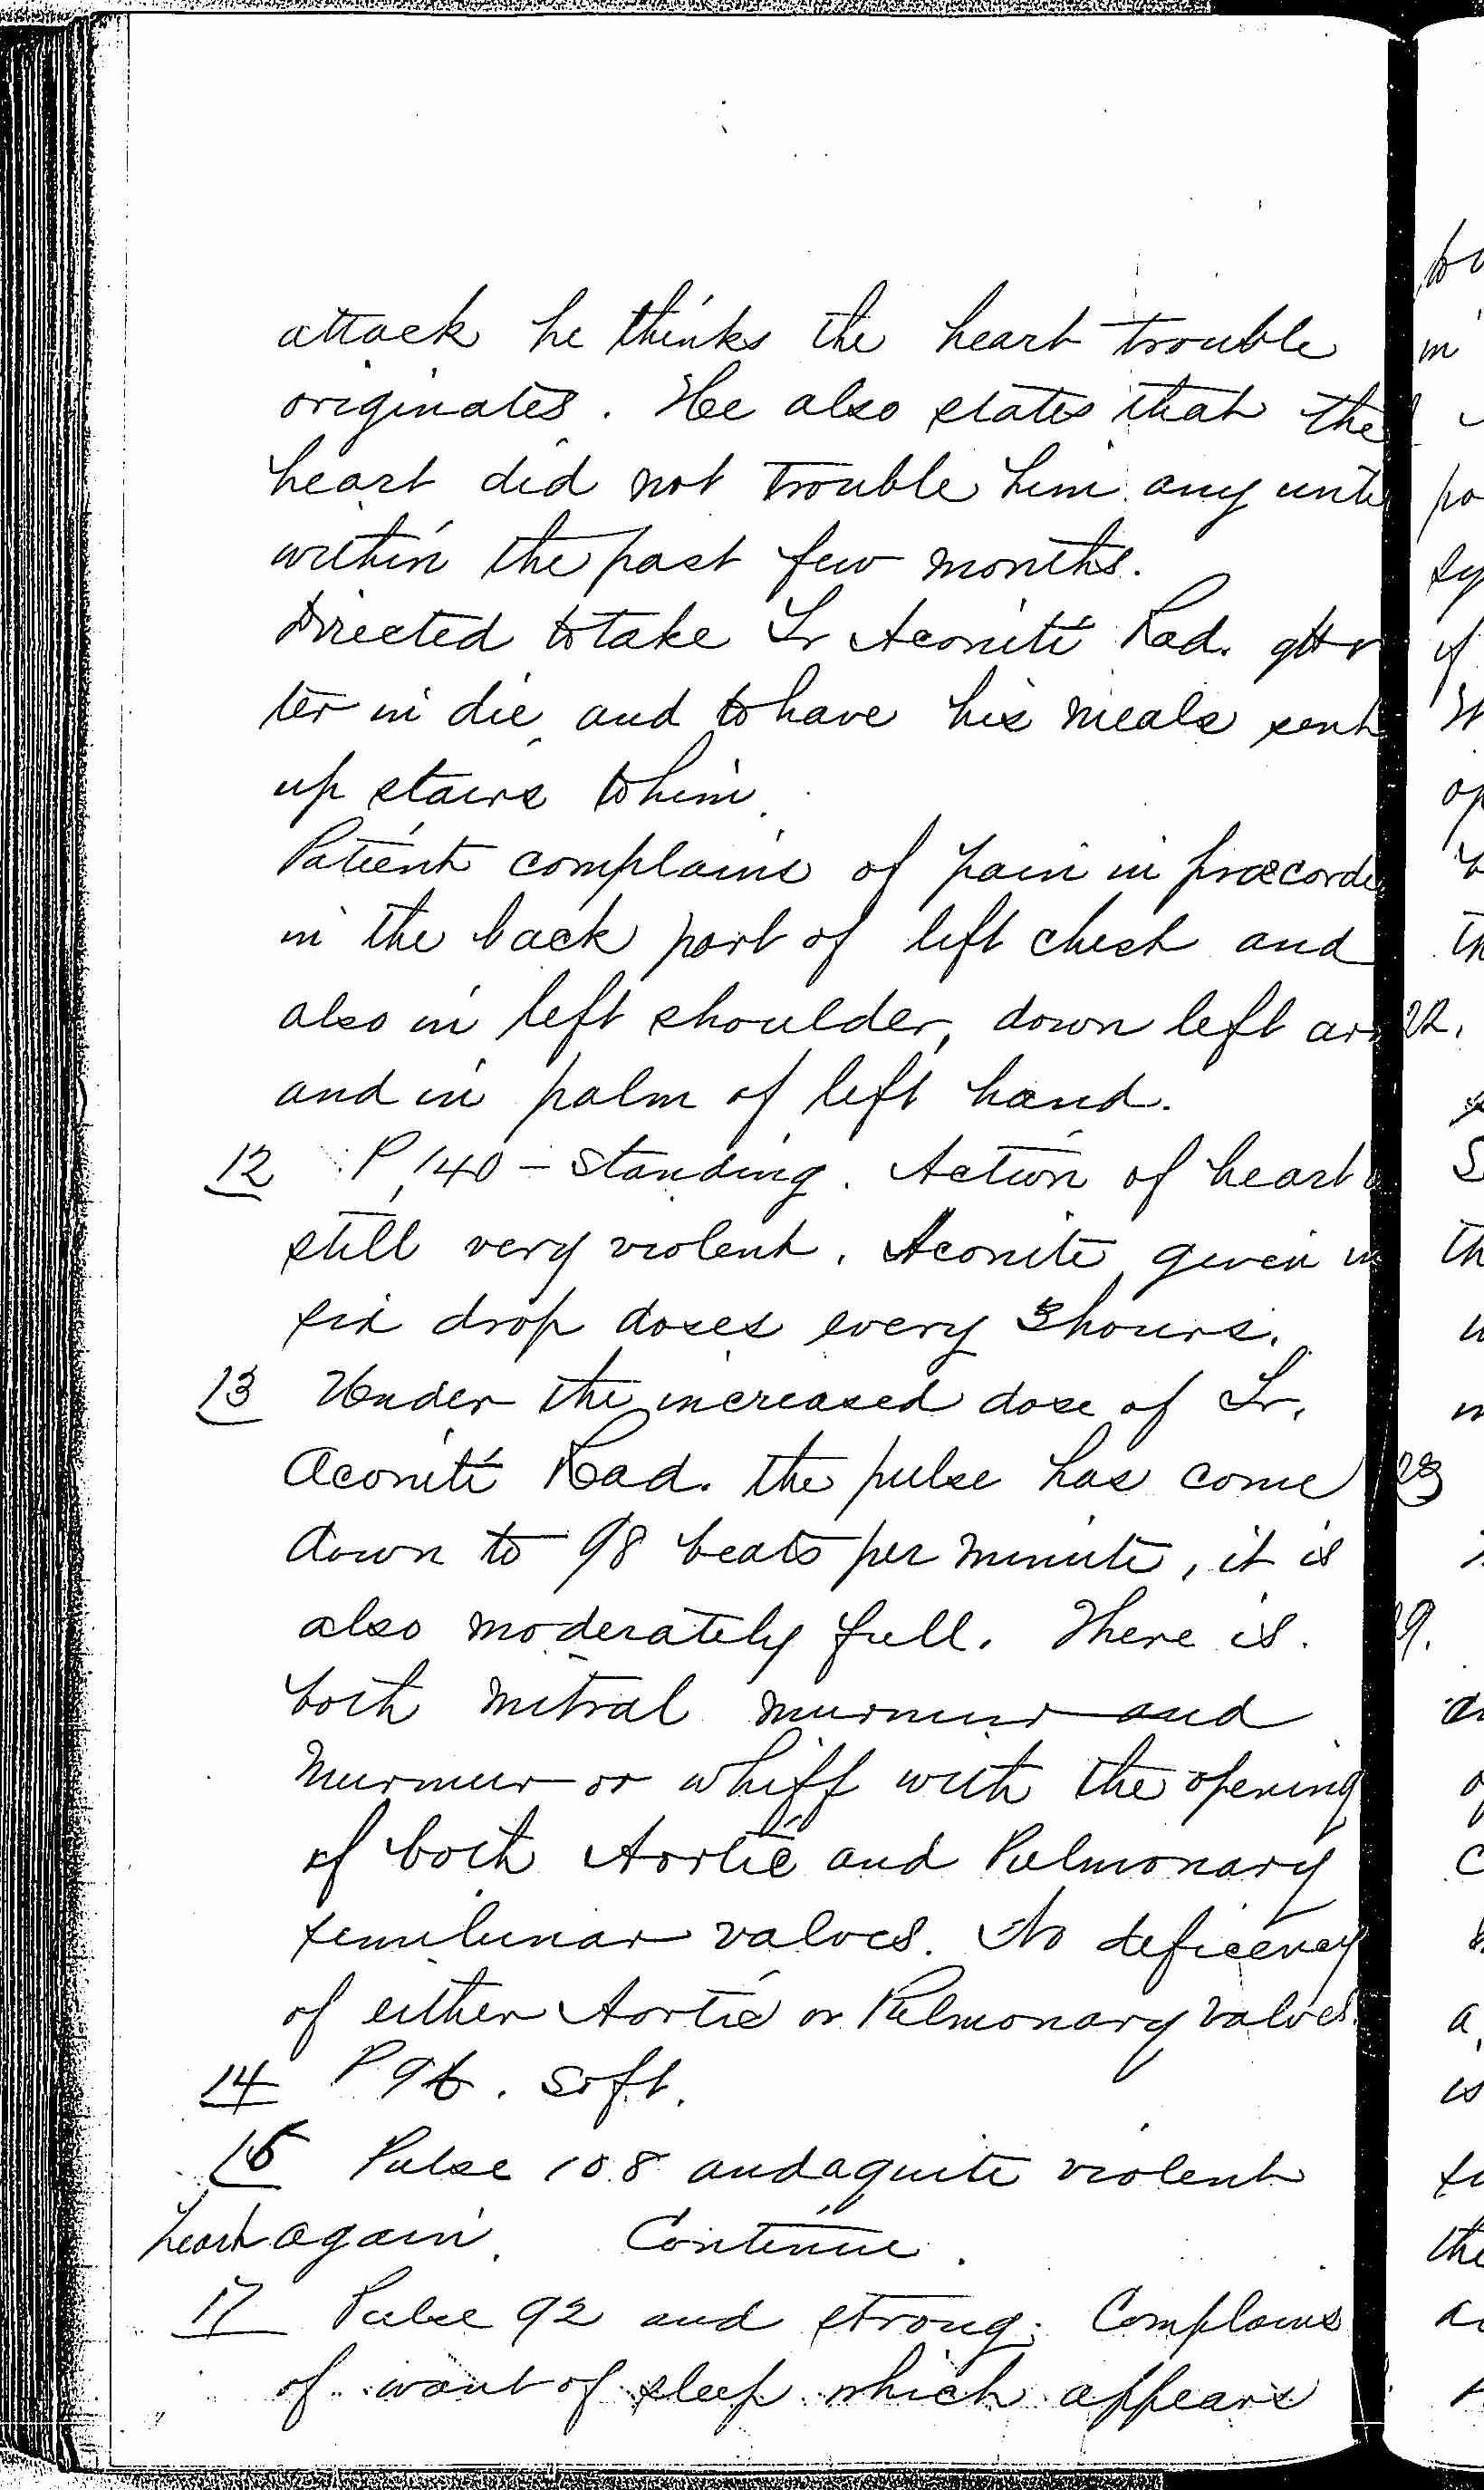 attack he thinks the heart trouble
originates. He also states that the
heart did not trouble him any unti
within the past few months.
Directed to take Tr Aconiti Rad. gtt v
ter in die, and to have his meals sent
up stairs to him.
Patient complains of pain in præcordi
in the back part of left chest and
also in left shoulder, down left arm
and in palm of left hand.
12 P, 140 - Standing. Action of heart
still very violent. Aconite, given in
six drop doses every 3 hours.
13 Under the increased dose of Tr.
Aconiti Rad. the pulse has come
down to 98 beats per minute, it is
also moderately full. There is
both mitral murmur and
murmur or whiff with the opening
of both Aortic and Pulmonary
semilunar valves. No deficency
of either Aortic or Pulmonary valves.
14 P 96. Soft.
15 Pulse 108 and aquite violent
heart again. Continue.
17 Pulse 92 and strong. Complains
of want of sleep which appears